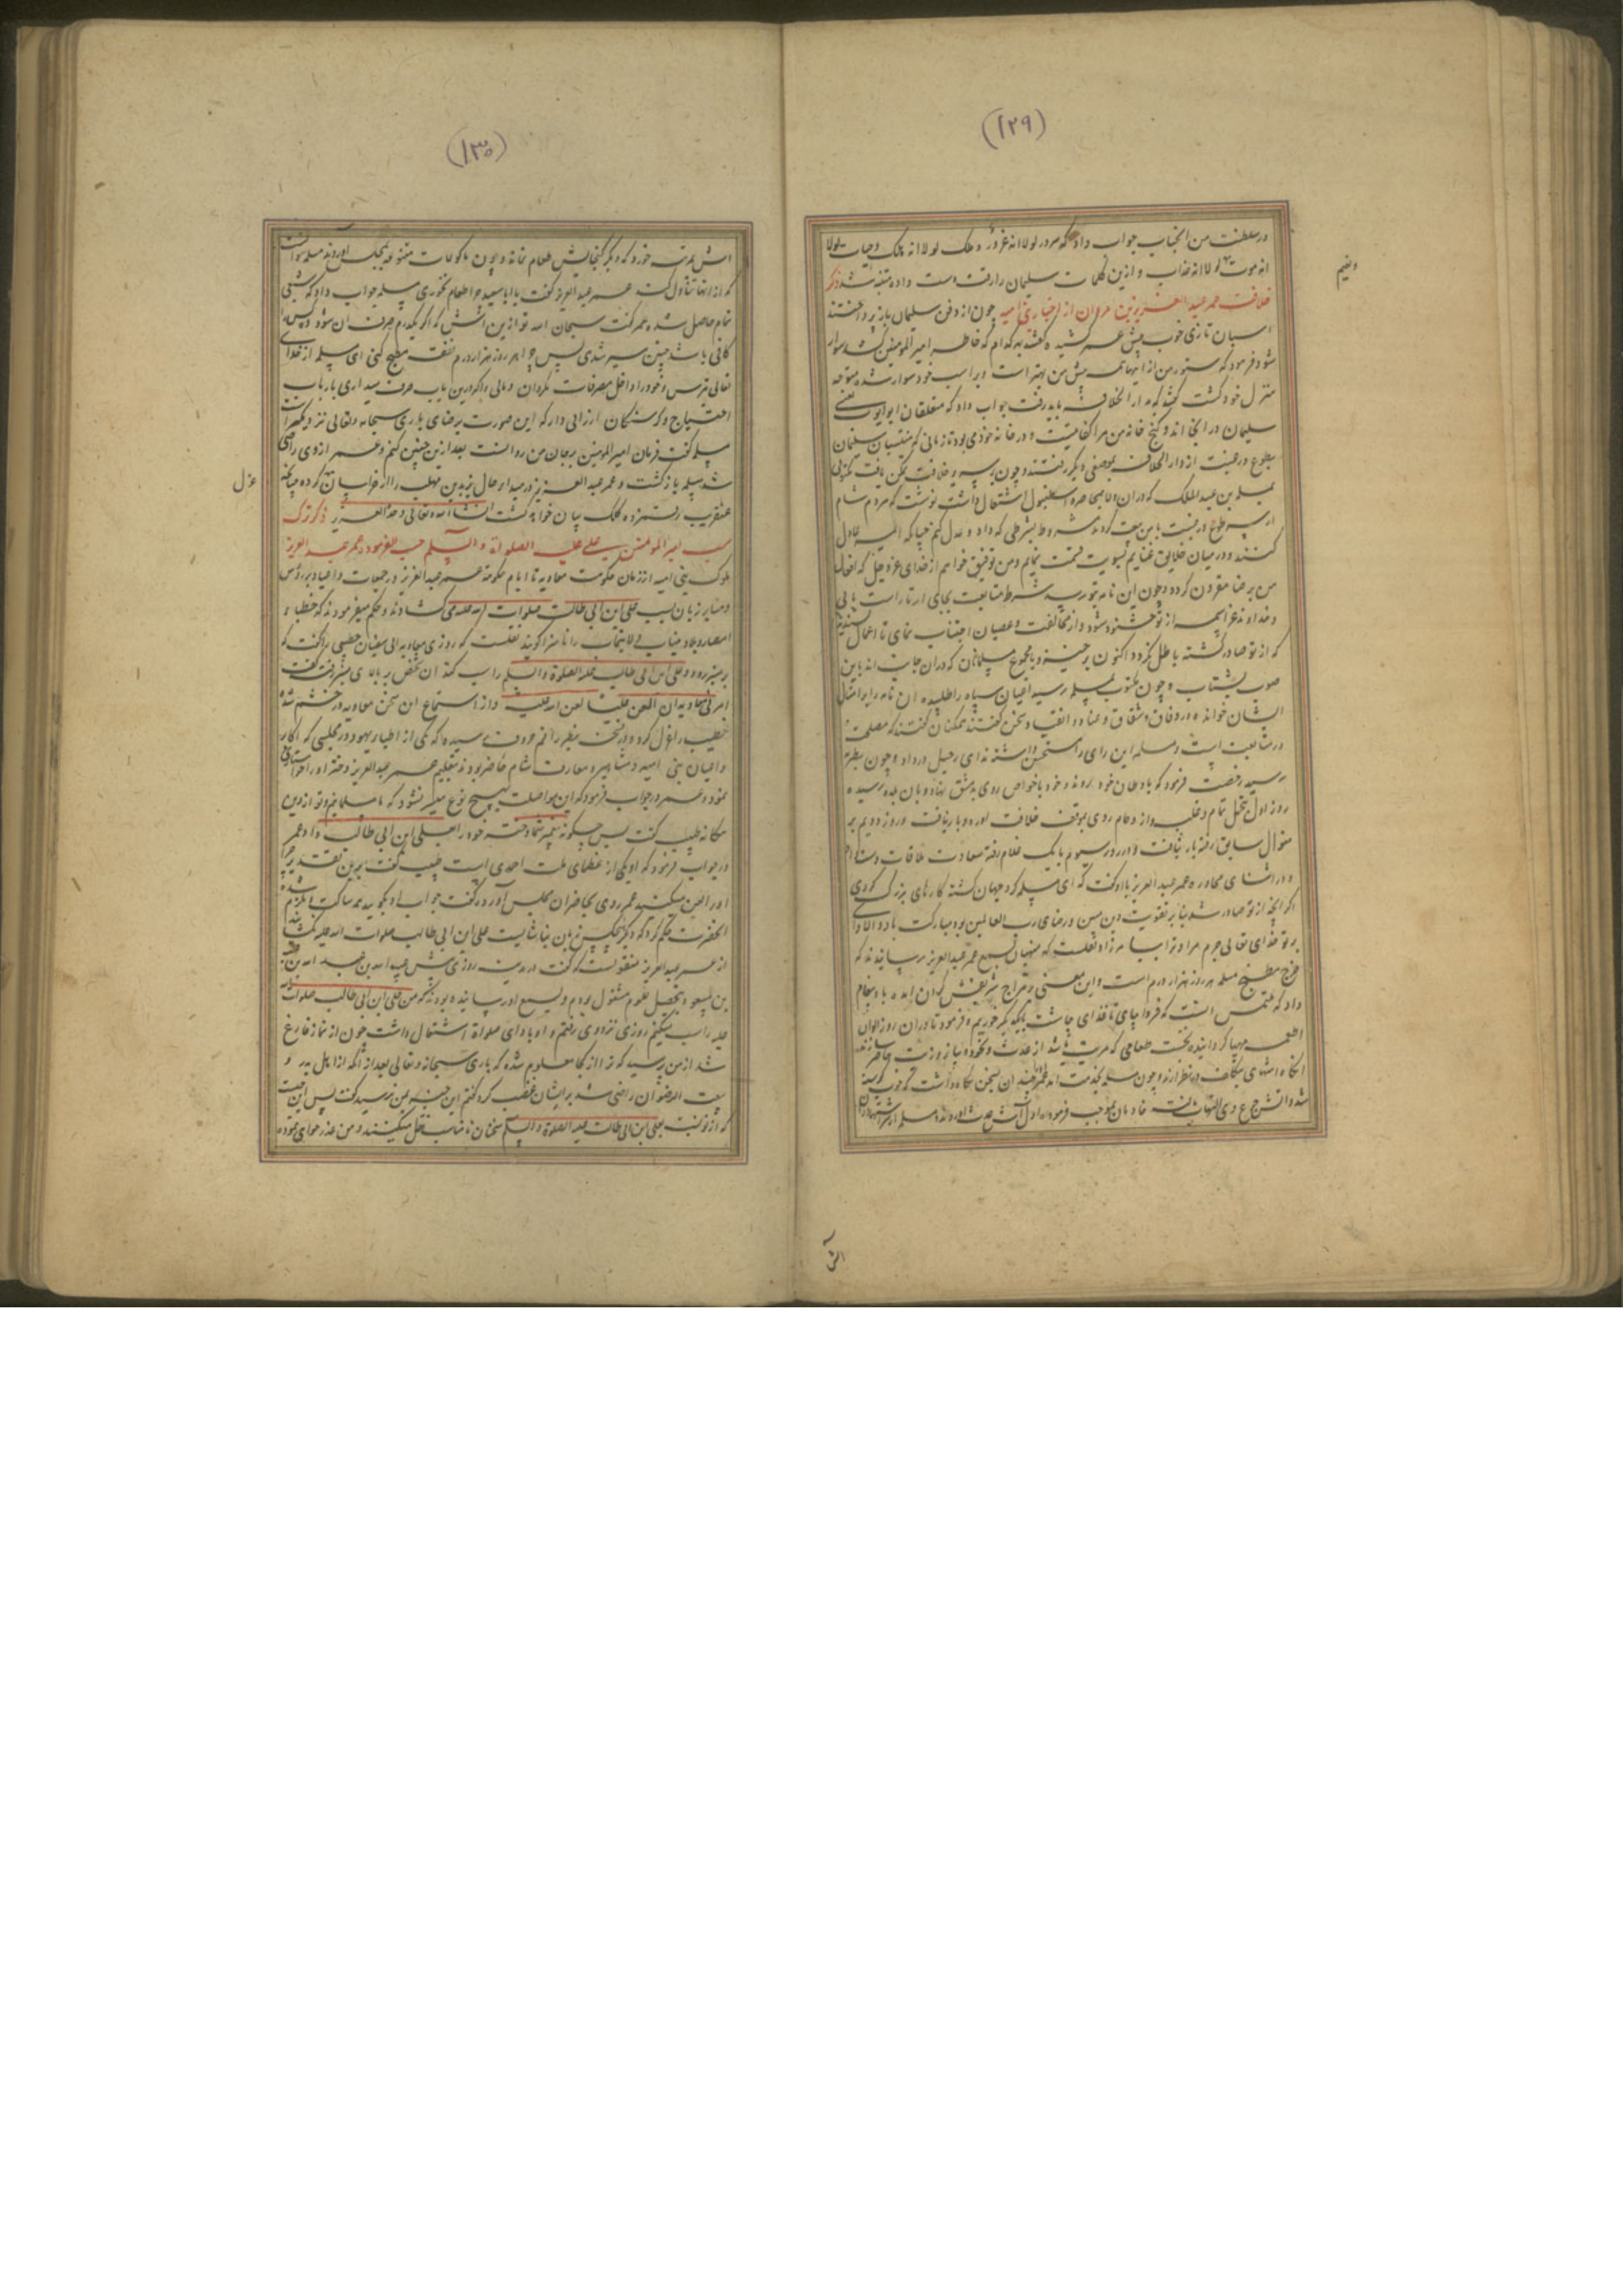 (۱۲۹)
در سلطنت من الجناب جواب داد که سرور لولا انه غرور و ملک لولا انه هلک و حیات لولا
انه موت لولا انه عذاب و ازین کلمات سلیمان را رقت دست داده متنبه شد ذکر
خلافت عمر عبد العزیز بن مروان از اخبار بنی امیه چون از دفن سلیمان باز پرداختند
اسبان تازی خوب پیش عمر کشیده گفتند بهر کدام که خاطر امیر المومنین کشد سوار
شود فرمود که ستور من از اینها همه پیش من بهتر است و بر اسب خود سوار شده متوجه
منزل خود گشت گفتند که بدار الخلافه باید رفت جواب داد که متعلقان ابو ایوب یعنی
سلیمان در انجا اند و کنج خانه من مرا کفایتست و در خانه خود می بود تا زمانی که منتسبان سلیمان
بطوع و رغبت از دار الخلافه بموضعی دیگر رفتند و چون بر سریر خلافت تمکن یافت مکتوبی
بمسلمه بن عبد الملک که دران ولا بمحاصره استنبول اشتغال داشت نوشت که مردم شام
از سر طوع و رغبت با من بیعت کردند مشروط بشرطی که داد و عدل کنم چنانکه ائمه عادل
کنند و در میان خلایق غنایم بسویت قسمت نمایم و من توفیق خواهم از خدای عز و جل که افعال
من برضا مقرون گردد و چون این نامه بتو رسد شرط متابعت بجای ار تا راست یابی
و خداوند عز اسمه از تو خشنود شود و از مخالفت و عصیان اجتناب نمای تا اعمال
که از تو صادر گشته باطل نگردد اکنون برخیز و با مجموع مسلمانان که دران جانب اند باین
صوب بشتاب و چون مکتوب بمسلمه رسید اعیان سپاه را طلبیده ان نامه را بر امثال
ایشان خوانده در وفاق و شقاق و عناد و انقیاد سخن گفتند همگنان گفتند که مصلحت
در متابعت است و مسلمه این رای را مستحسن داشته ندای رحیل در داد و چون
رسید رخصت فرمود که باوطان خود روند و خود با خواص روی بدمشق نهاد و بان بلده رسیده
روز اول بتجمل تمام و غلبه و ازدحام روی بموقف خلافت اورد و بار نیافت و روز دویم بر
منوال سابق رفته بار نیافت و در روز سیوم با یک غلام رفته سعادت ملاقات دست داد
و در اثنای محاوره عمر عبد العزیز با او گفت که ای مسلمه گرد جهان گشته کارهای بزرگ کردی
اگر انچه از تو صادر شد بنا بر تقویت دین مبین و رضای رب العالمین بود مبارکت باد و الا وای
بر تو خدای تعالی جرم مرا و ترا بیامرزاد نقلست که منهیان بسمع عمر عبد العزیز رسانیدند که
خرج مطبخ مسلمه هر روز هزار درم است و این معنی بر مزاج شریفش گران امده باو پیغام
داد که ملتمس انست که فردا بیایی تا غذای چاشت با یکدیگر خوریم و فرمود تا دران روز الوان
اطعمه مهیا گردانیده نخست طعامی که مرتب باشد از عدس و نخود و پیاز و زیت حاضر سازند
انگاه اشهای بتکلف در نظر ارند و چون مسلمه بخدمت امد عمر چندان بسخن نگاه داشت که خوب گرسنه
شد و اتش جوع وی التهاب یافت خادمان بموجب فرموده اول آش عدس اوردند و مسلمه از
وضیم
الش
(۱۳۰)
اش بمرتبه خورد که دیگر گنجایش طعام نماند و چون ماکولات متنوعه بمجلس اوردند مسلمه
که از انها تناول کند عمر عبد العزیز گفت یا ابا سعید چرا طعام نخوری مسلمه جواب داد که شبعی
تمام حاصل شده عمر گفت سبحان الله تو ازین اش که اگر یکدرم صرف ان شود ده کس را
کافی باشد چنین سیر شدی پس چرا هر روز هزار درم نفقه مطبخ کنی ای مسلمه از خدای
تعالی بترس و خود را داخل مسرفان مگردان و مالی را که درین باب صرف میداری بارباب
احتیاج و گرسنگان ارزانی دار که این صورت برضای باری سبحانه و تعالی نزدیکتر است
مسلمه گفت فرمان امیر المومنین بر جان من روانست بعد ازین چنین کنم و عمر از وی راضی
شد مسلمه بازگشت و عمر عبد العزیز در مبداء حال یزید بن مهلب را از خراسان کرده چنانکه
عنقریب رقمزده کلک بیان خواهد گشت انشاء الله تعالی وحده العزیز ذکر ترک
سب امیر المومنین علی علیه الصلواة و السلم حسب الفرموده عمر عبد العزیز
ملوک بنی امیه از زمان حکومت معاویه تا ایام حکومت عمر عبد العزیز در جمعات و اعیاد بر رؤس
و منابر زبان بسب علی ابن ابی طالب صلوات الله علیه می گشادند و حکم میفرمودند که خطباء
امصار و بلاد جناب ولایتماب را ناسزا گویند نقلست که روزی معاویه ابی سفیان خطیبی را گفت که
بر منبر رود و علی ابن ابی طالب علیه الصلوة و السلم را سب کند ان شخص بر بالای منبر رفته گفت
امرنی معاویه ان العن علیا لعن الله علیه و از استماع ان سخن معاویه در خشم شده
خطیب را عزل کرد و در نسخه بنظر راقم حروف رسیده که یکی از احبار یهود در مجلسی که اکابر
و اعیان بنی امیه و مشاهیر و معارف شام حاضر بودند بتعلیم عمر عبد العزیز دختر او را خواستگاری
نمود و عمر در جواب فرمود که این مواصلت بهیچ نوع میسر نشود که ما مسلمانیم و تو از دین
بیگانه طبیب گفت پس چگونه پیغمبر شما دختر خود را بعلی ابن ابی طالب داد عمر
در جواب فرمود که او یکی از عظمای ملت احمدی است طبیب گفت برین تقدیر چرا
او را لعن میکنید عمر روی بحاضران مجلس آورد و گفت جواب او بگویید همه ساکت و ملزم شدند
انحضرت حکم کرد که دیگر هیچکس زبان بناشایست علی ابن ابی طالب صلوات الله علیه نگشاید
از عمر عبد العزیز منقولست که گفت در مدینه روزی پیش عبید الله بن عبد الله بن عتبه
بن مسعود بتحصیل علوم مشغول بودم و بسمع او رسانیده بودند که من علی ابن ابی طالب صلوات الله
علیه را سب میکنم روزی نزد وی رفتم و او بادای صلواة اشتغال داشت چون از نماز فارغ
شد از من پرسید که ترا از کجا معلوم شده که باری سبحانه و تعالی بعد از انکه از اهل بدر و
بیعت الرضوان راضی شد بر ایشان غضب کرد گفتم این خبر بمن نرسید گفت پس این چیست
که از تو نسبت بعلی ابن ابی طالب علیه الصلوة و السلم سخنان نامناسب نقل میکنند و من عذر خواهی نموده
عزل